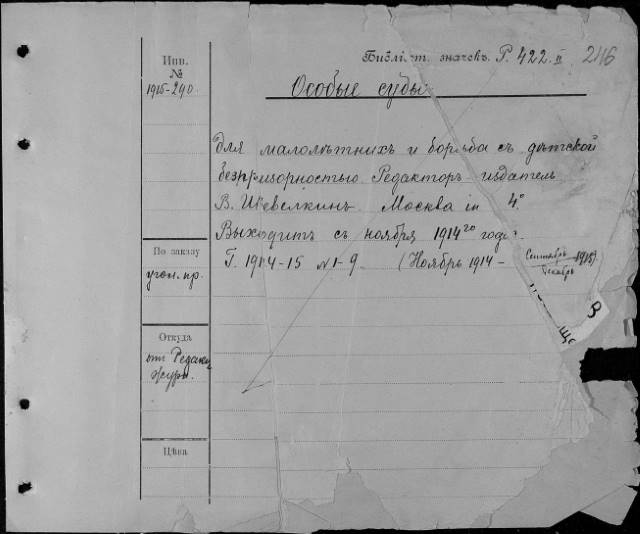 Библіот. значекъ. Р. 422. II 246
Инв.
№
1915-290.
Особые суды
для малолѣтнихъ и борьба съ дѣтской
безпризорностью Редакторъ-издатель
В. Шевелкинъ. Москва in 4°
Выходитъ съ ноября 1914го года.
Г. 1914-15 №1-9. (Ноябрь 1914 - Сентябрь 1915).
Декабрь
По заказу
угол. пр.
Откуда
отъ Редакц.
журн.
Цѣна